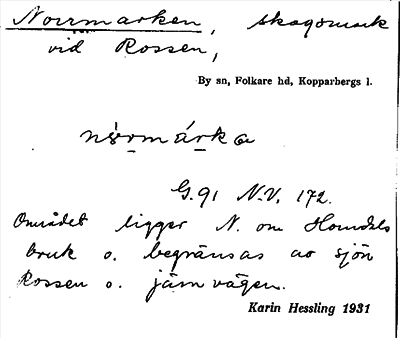 Norrmarken, skogsmark
vid Rossen,
By sn, Folkare hd, Kopparbergs l.
nòrmárka
G.91 N.V. 172.
Området ligger N. om Horndals
bruk o. begränsas av sjön
Rossen o. järnvägen.
Karin Hessling 1931